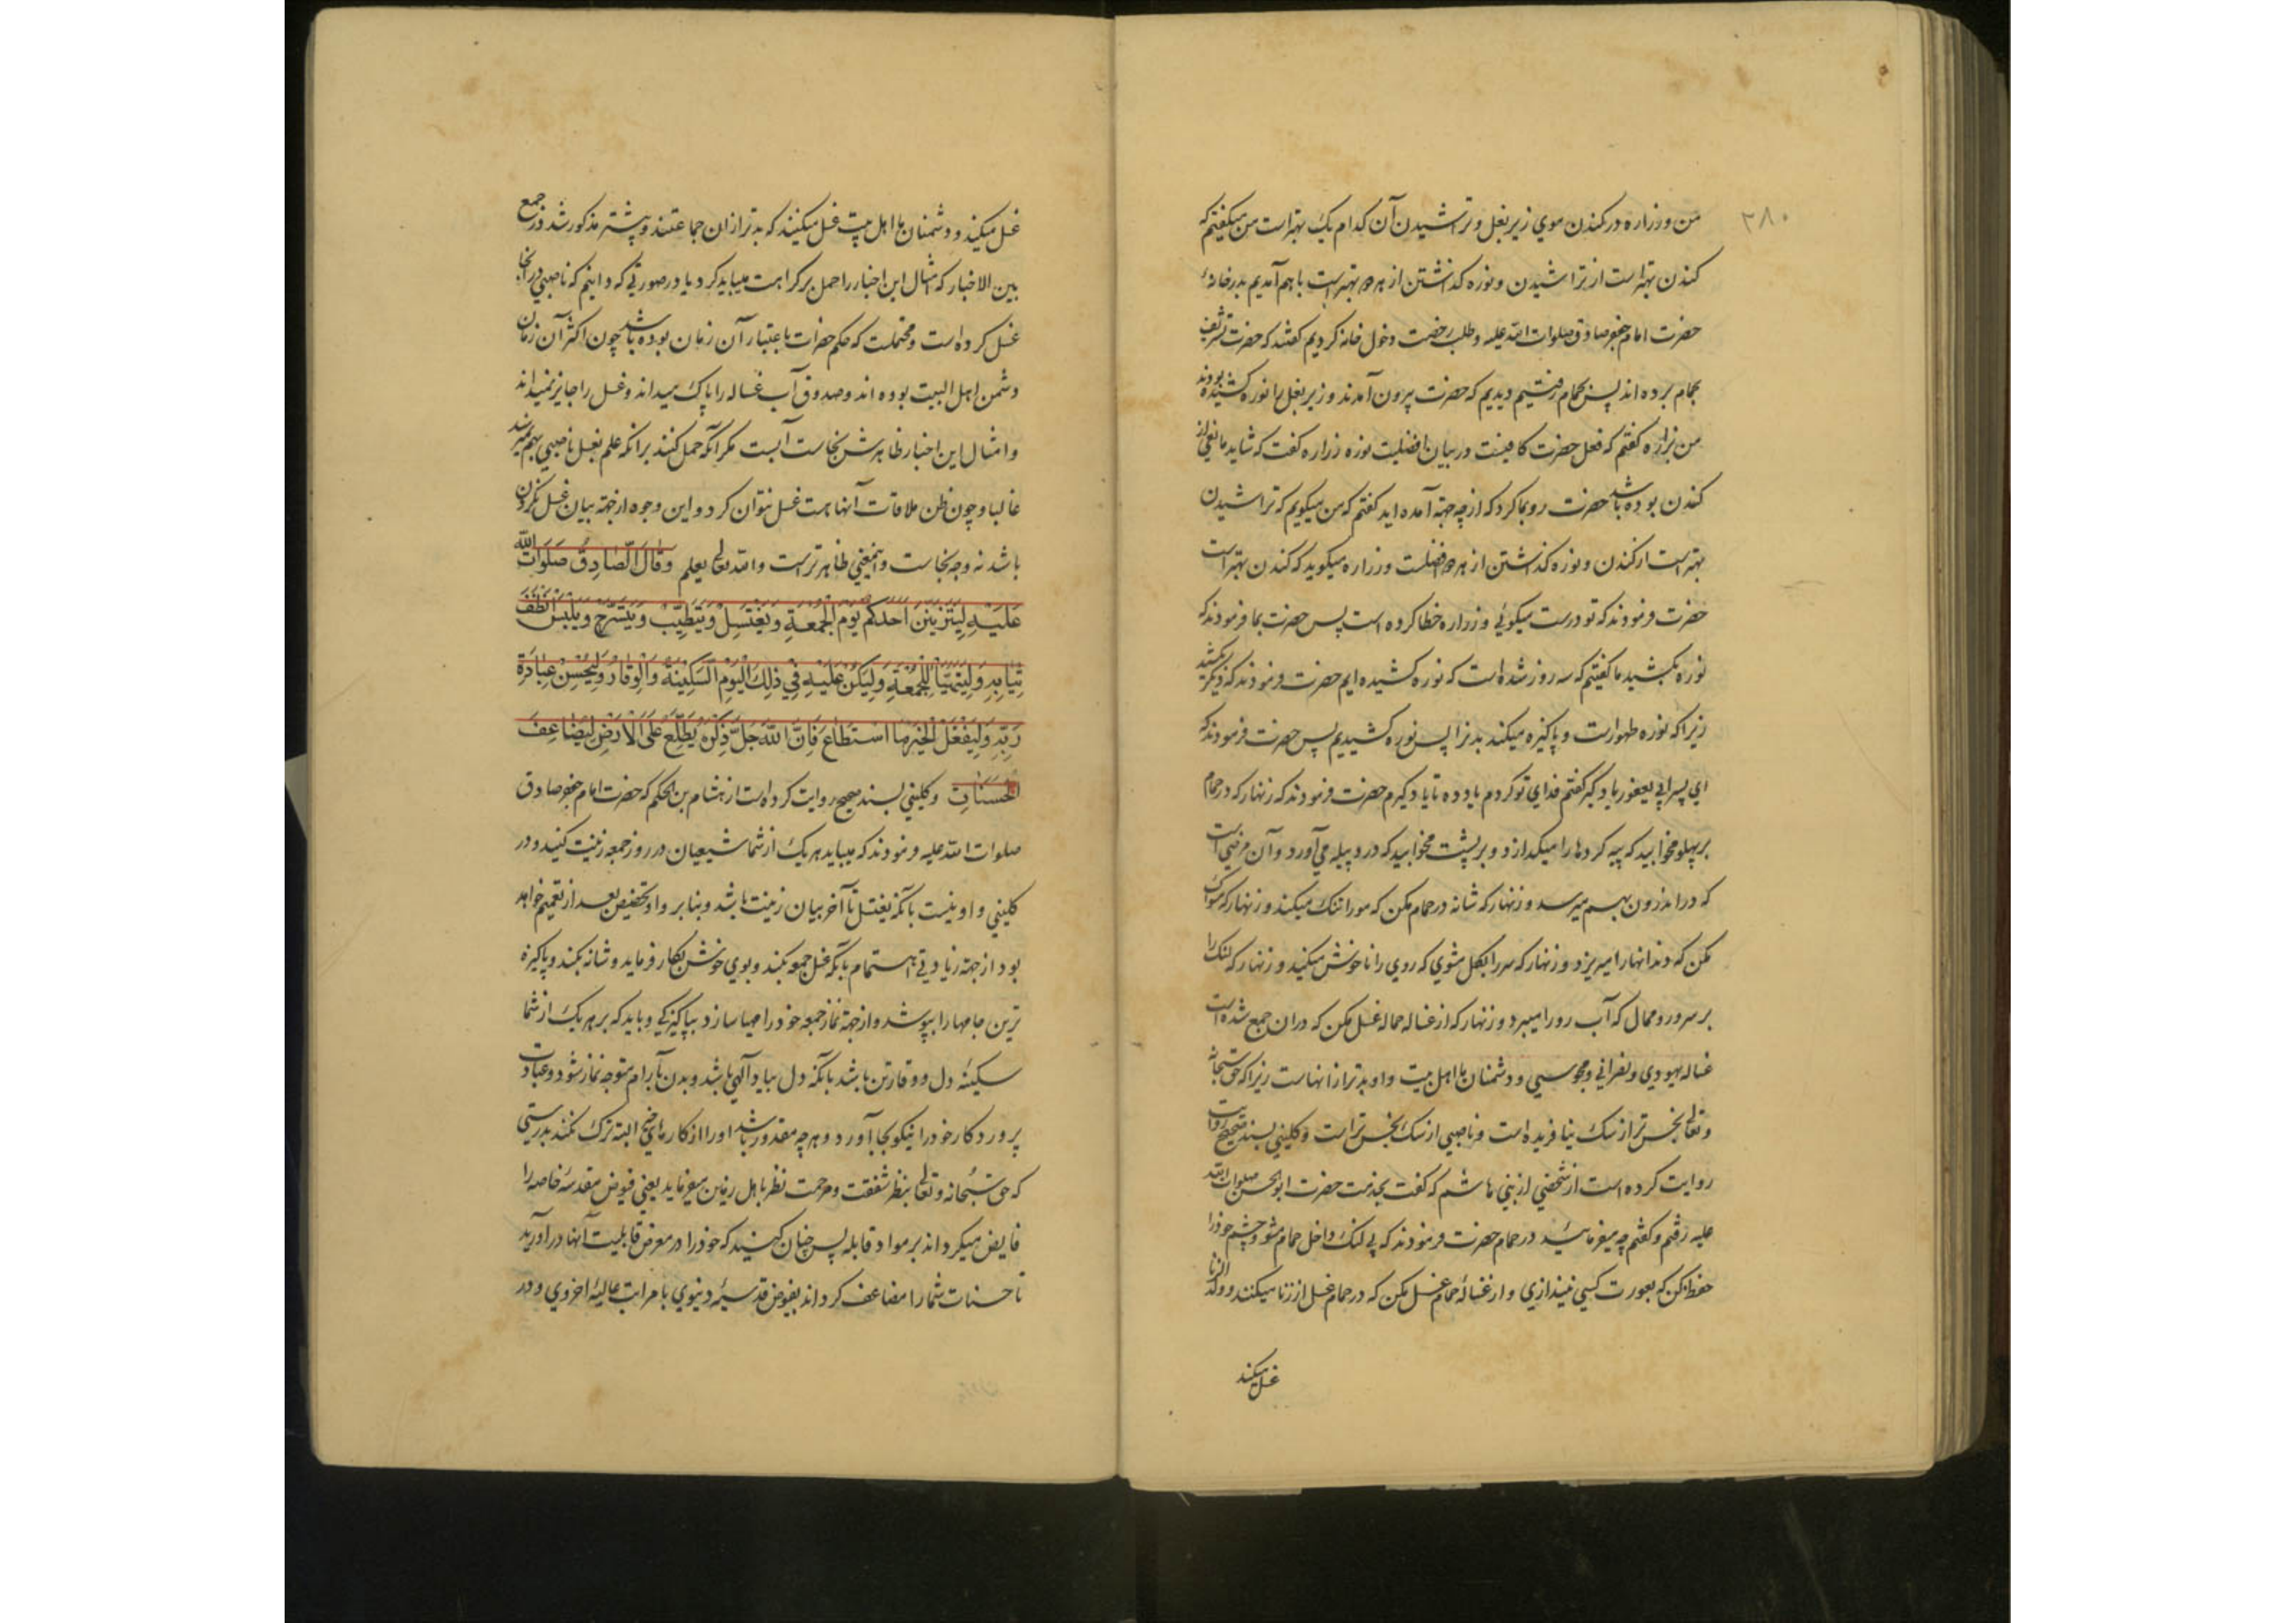 ۲۸۰
من و زراره در کندن موي زیر بغل و تراشیدن آن کدام یک بهتر است من میگفتم که
کندن بهتر است از تراشیدن و نوره کذاشتن از هر دو بهتر است با هم آمدیم بدر خانهٔ
حضرت امام جعفر صادق صلوات الله علیه و طلب رخصت دخول خانه کردیم گفتند که حضرت تشریف
بحمام برده اند پس بحمام رفتیم دیدیم که حضرت بیرون آمدند و زیر بغل را نوره کشیده بودند
من بزراره کفتم که فعل حضرت کافیست در بیان افضلیت نوره زراره کفت که شاید مانعی از
کندن بوده باشد حضرت رو بما کرد که از چه جهة آمده اید کفتم که من میکویم که تراشیدن
بهتر است از کندن و نوره کذاشتن از هر دو افضلست و زراره میکوید که کندن بهتر است
حضرت فرمودند که تو درست میکوئي و زراره خطا کرده است پس حضرت بما فرمودند که
نوره بکشید ما کفتیم که سه روز شده است که نوره کشیده ایم حضرت فرمودند که دیکر بکشید
زیرا که نوره طهورست و پاکیزه میکند بدنرا پس نوره کشیدیم پس حضرت فرمودند که
اي پسر ابي یعفور یاد کیر کفتم فداي تو کردم یاد ده تا یاد کیرم حضرت فرمودند که زنهار که در حمام
بر پهلو مخوابید که پیه کردها را میکدازد و بر پشت مخوابید که درد پیله مي آورد و آن مرضي است
که در اندرون بهم میرسد و زنهار که شانه در حمام مکن که مو را تنک میکند و زنهار که مسواک
مکن که دندانها را میریزد و زنهار که سر را بکل مشوي که روي را ناخوش میکند و زنهار که لنک را
بر سر و رو ممال که آب رو را میبرد و زنهار که از غساله حماله غسل مکن که در ان جمع شده است
غساله یهودي و نصراني و مجوسي و دشمنان ما اهل بیت و او بدتر از انهاست زیرا که حق سبحانه
و تعالی نجس تر از سک نیافریده است و ناصبي از سک نجس تر است و کلیني بسند صحیح روایت
روایت کرده است از شخصي از بني هاشم که کفت بخدمت حضرت ابو الحسن صلوات الله
علیه رفتم و کفتم چه میفرمائید در حمام حضرت فرمودند که بي لنک داخل حمام مشو و چشم خود را
حفظ کن که بعورت کسي نیندازي و از غسالهٔ حمام غسل مکن که در حمام غسل از زنا میکنند و ولد الزنا
غسل میکند
غسل میکند و دشمنان ما اهل بیت غسل میکنند که بدتر از ان جماعتند و پیشتر مذکور شد در جمع
بین الاخبار که امثال این اخبار را حمل بر کراهت میباید کرد یا در صورتي که دانیم که ناصبي در انجا
غسل کرده است و محتملست که حکم حضرات باعتبار آن زمان بوده باشد چون اکثر آن زمان
دشمن اهل البیت بوده اند و صدوق آب غساله را پاک میداند و غسل را جایز نمیداند
و امثال این اخبار ظاهرش نجاست آبست مکر آنکه حمل کنند بر آنکه علم بغسل ناصبي بهم میرسد
غالبا و چون ظن ملاقات آنها هست غسل نتوان کرد و این وجوه از جهة بیان غسل نکردن
باشد نه وجه نجاست و اینمعني ظاهرتر است و الله تعالی یعلم وَقَالَ الصَّادِقُ صَلَوَاتُ الله
عَلَیْهِ لِیَتَزَیَّنَ اَحَدُکُمْ یَوْمَ الْجُمُعَةِ وَیَغْتَسِلْ وَیَتَطَیَّبْ وَیَتَسَرَّحْ وَیَلْبَسْ اَنْظَفَ
ثِیَابِهِ وَلْیَتَهَیَّأْ لِلْجُمُعَةِ وَلْیَکُنْ عَلَیْهِ فِي ذٰلِکَ الْیَوْمِ السَّکِینَةُ وَالْوِقَارُ وَلْیُحْسِنْ عِبَادَةَ
رَبِّهِ وَلْیَفْعَلِ الْخَیْرَ مَا اسْتَطَاعَ فَاِنَّ اللهَ جَلَّ ذِکْرُهُ یَطَّلِعُ عَلَی الْاَرْضِ لِیُضَاعِفَ
الْحَسَنَاتِ و کلیني بسند صحیح روایت کرده است از هشام بن الحکم که حضرت امام جعفر صادق
صلوات الله علیه فرمودند که میباید هر یک از شما شیعیان در روز جمعه زینت کنید و در
کلیني واو نیست بآنکه یغتسل تا آخر بیان زینت باشد و بنا بر واو تخصیص بعد از تعمیم خواهد
بود از جهة زیادتي اهتمام بآنکه غسل جمعه بکند و بوي خوش بکار فرماید و شانه بکند و پاکیزه
ترین جامها را بپوشد و از جهة نماز جمعه خود را مهیا سازد بپاکیزکي و باید که بر هر یک از شما
سکینهٔ دل و وقار تن باشد بآنکه دل بیاد آلهي باشد و بدن بآرام متوجه نماز شود و عبادت
پروردکار خود را نیکو بجا آورد و هر چه مقدور باشد او را از کارهاي خیر البته ترک نکند بدرستي
که حق سبحانه و تعالی بنظر شفقت و مرحمت نظر باهل زمین میفرماید یعني فیوض مقدسهٔ خاصه را
فایض میکرداند بر مواد قابله پس چنان کنید که خود را در معرض قابلیت آنها در آورید
تا حسنات شما را مضاعف کرداند بفیوض قدسیهٔ دنیوي با مراتب عالیهٔ اخروي و در